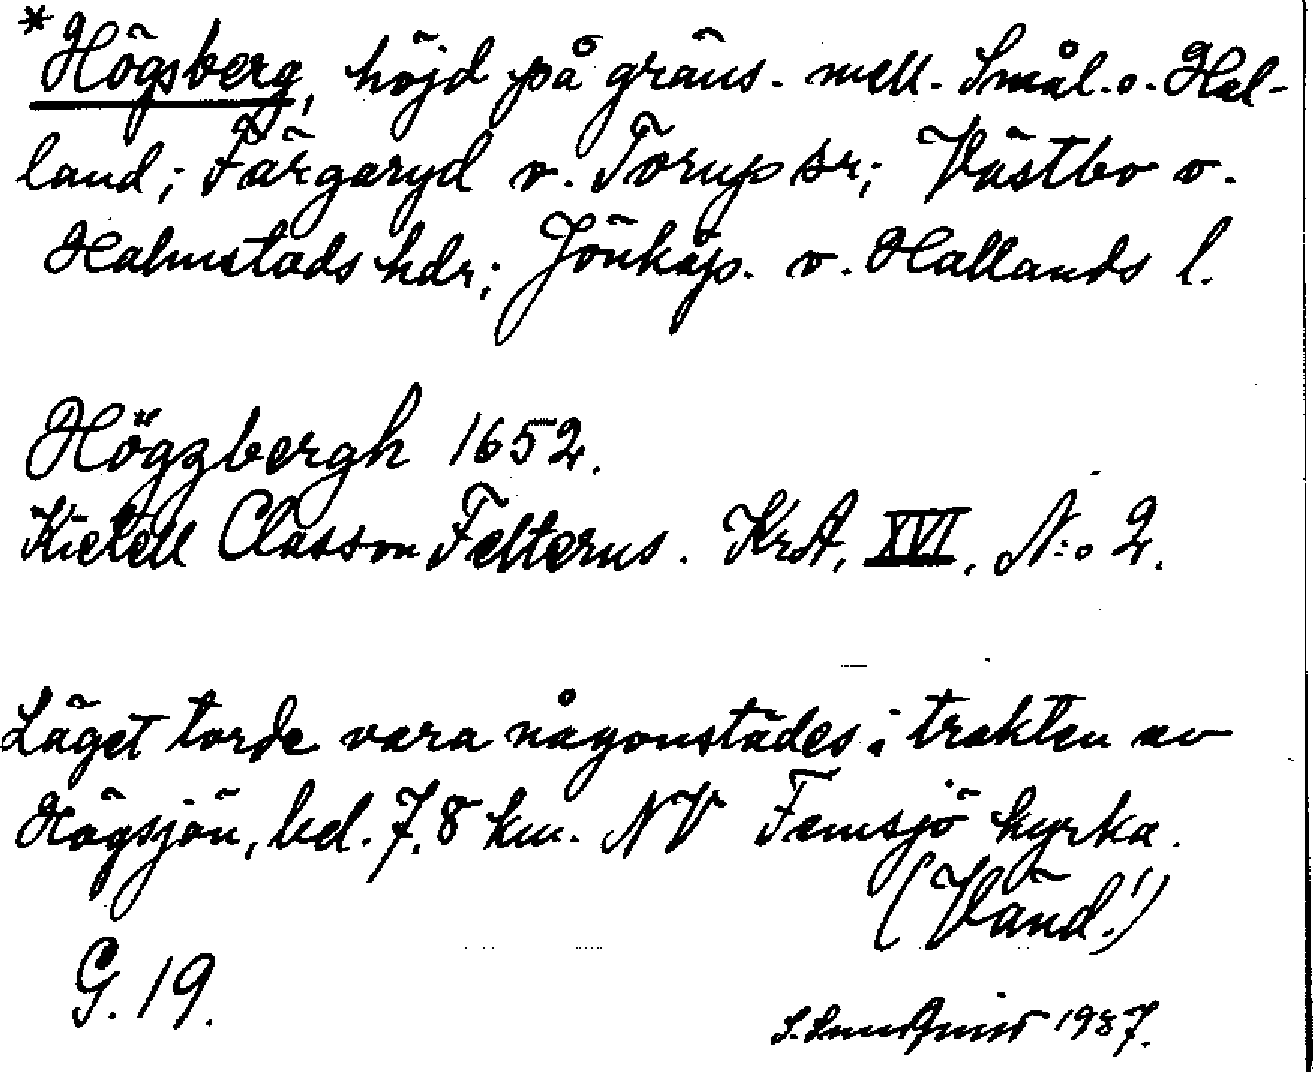 *Högsberg, höjd på gräns. mell. Smål. o. Hal-
land; Färgaryd o. Torup sr; Västbo o.
Halmstads hdr; Jönköp. o. Hallands l.
Högzbergh 1652.
Kietell Classon Felterus. KrA, XVI, N:o 2.
Läget torde vara någonstädes i trakten av
Högsjön, bel. 7,8 km. NV Femsjö kyrka.
(Vänd!)
G. 19.
1987.